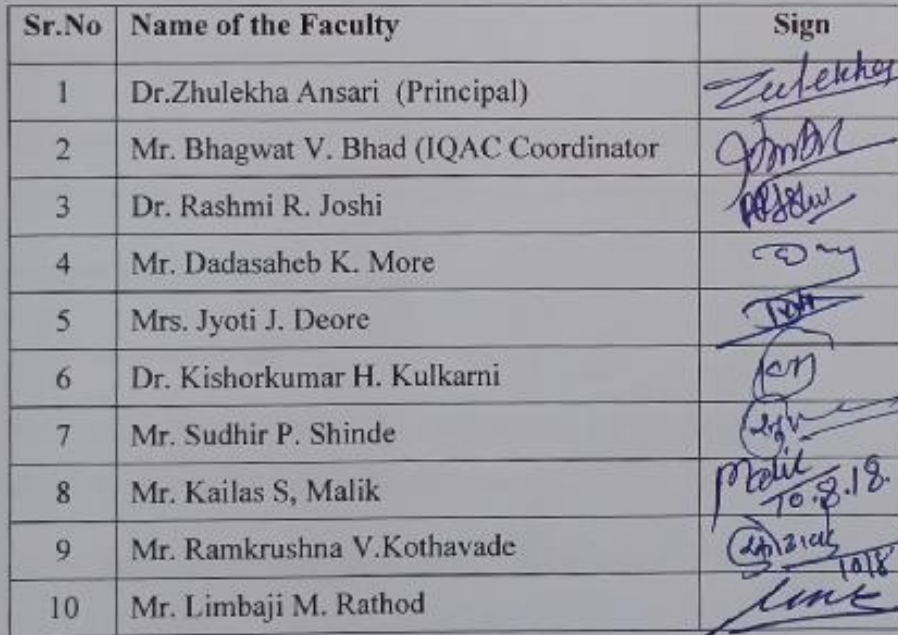 Sr.No Name of the Faculty Sign
1 Dr.Zhulekha Ansari (Principal) Zulekha
2 Mr. Bhagwat V. Bhad (IQAC Coordinator
3 Dr. Rashmi R. Joshi
4 Mr. Dadasaheb K. More
5 Mrs. Jyoti J. Deore
6 Dr. Kishorkumar H. Kulkarni
7 Mr. Sudhir P. Shinde
8 Mr. Kailas S, Malik Malik 10.8.18.
9 Mr. Ramkrushna V.Kothavade 10/8
10 Mr. Limbaji M. Rathod